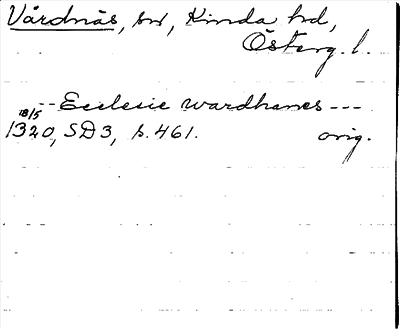 Vårdnäs, sn, Kinda hd,
Österg. l.
-- Ecclesie wardhanes ---
18/5
1320, SD3, s. 461. orig.